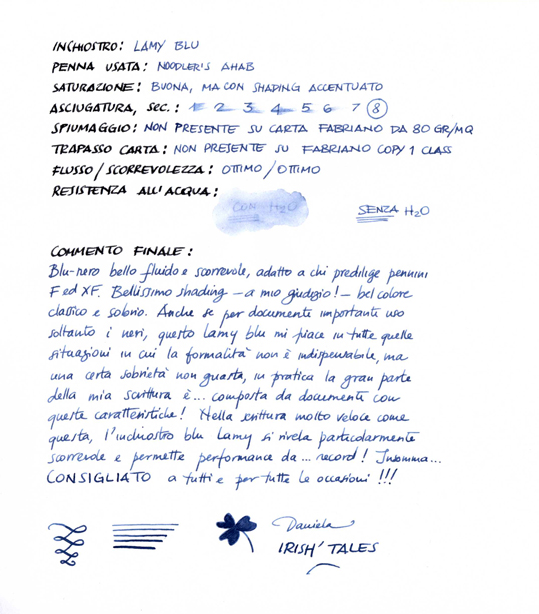 INCHIOSTRO: LAMY BLU
PENNA USATA: NOODLER'S AHAB
SATURAZIONE: BUONA, MA CON SHADING ACCENTUATO
ASCIUGATURA, SEC.: 1 2 3 4 5 6 7 8
SPIUMAGGIO: NON PRESENTE SU CARTA FABRIANO DA 80 GR/MQ
TRAPASSO CARTA: NON PRESENTE SU FABRIANO COPY 1 CLASS
FLUSSO/SCORREVOLEZZA: OTTIMO/OTTIMO
RESISTENZA ALL'ACQUA:
CON H2O SENZA H2O
COMMENTO FINALE:
Blu-nero bello fluido e scorrevole, adatto a chi predilige pennini
F ed XF. Bellissimo shading - a mio giudizio! - bel colore
classico e sobrio. Anche se per documenti importanti uso
soltanto i neri, questo Lamy blu mi piace in tutte quelle
situazioni in cui la formalità non è indispensabile, ma
una certa sobrietà non guasta, in pratica la gran parte
della mia scrittura è... composta da documenti con
queste caratteristiche! Nella scrittura molto veloce come
questa, l'inchiostro blu Lamy si rivela particolarmente
scorrevole e permette performance da... record! Insomma...
CONSIGLIATO a tutti e per tutte le occasioni!!!
Daniela
IRISH' TALES